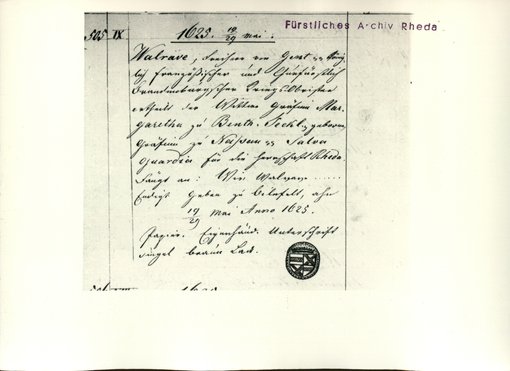 Fürstliches Archiv Rheda
505 IX 1625. 19/29 Mai.
Walrave, Freiherr von Gent
Französischer und Churfürstlich
Brandenburgischer Kriegs Obrister
ertheilt der Wittwe Gräfinn Mar
garetha zu Benth. Teckl. geboren
Gräfinn zu Nassau Salva
Guardia für die Herrschaft Rheda.
Fängt an: Wir Walraven ......
Endigt Geben zu Bilefelt, ahn
19/29 Mai Anno 1625.
Papier. Eigenhänd. Unterschrift
Siegel braun Lack.
1625